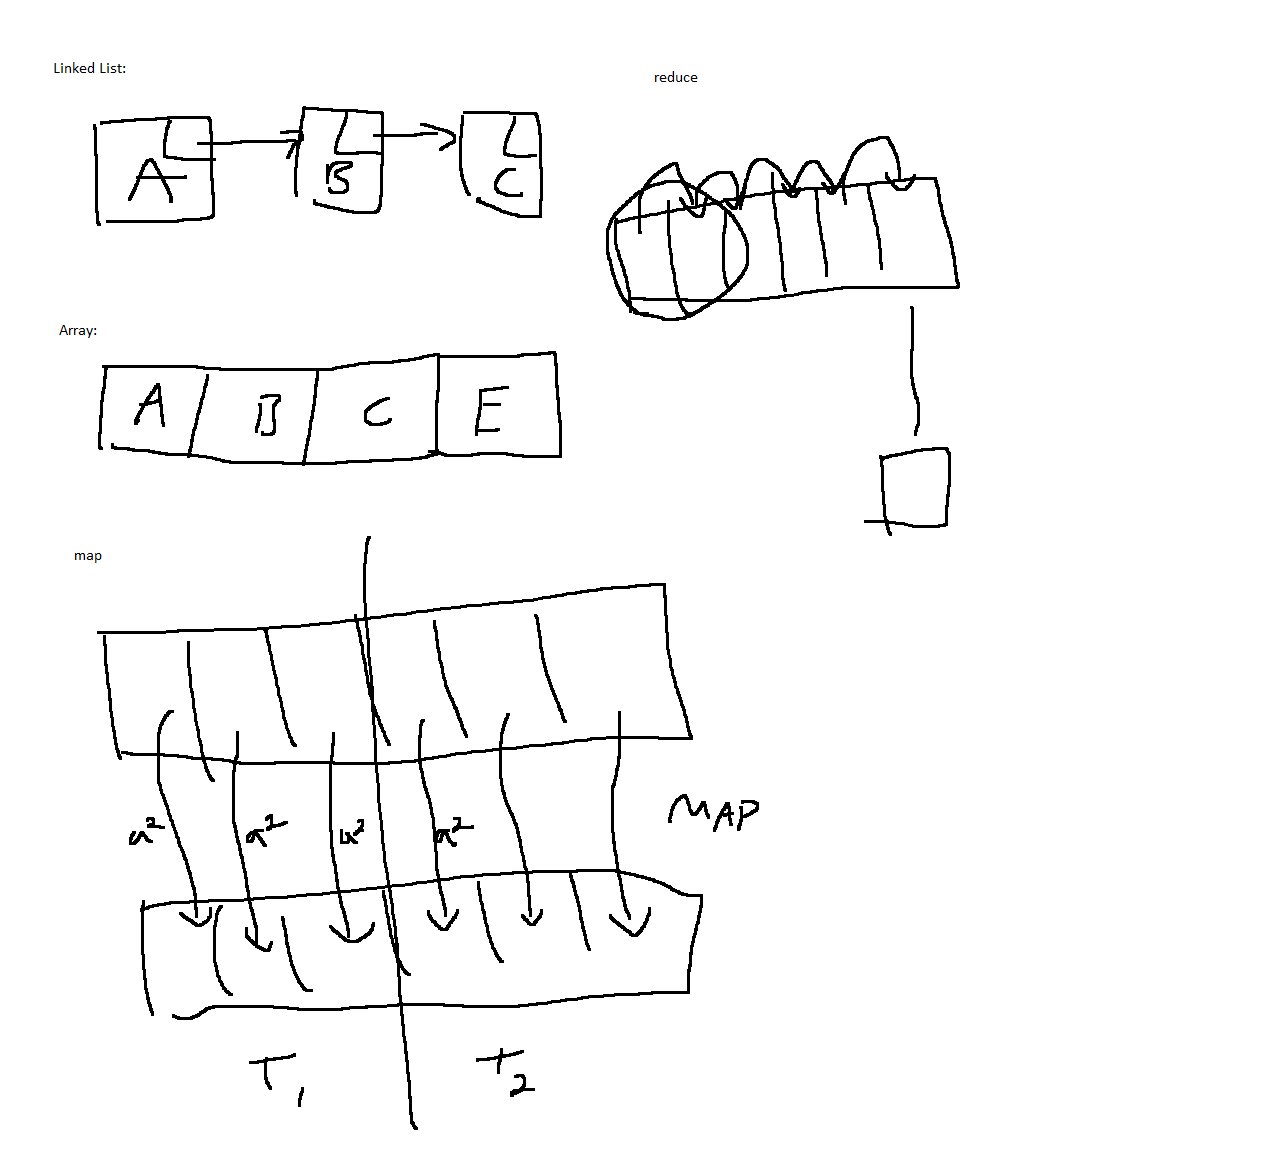 Linked List:
reduce
A B C
Array:
A B C E
map
a² a² a² a²
MAP
T₁ T₂